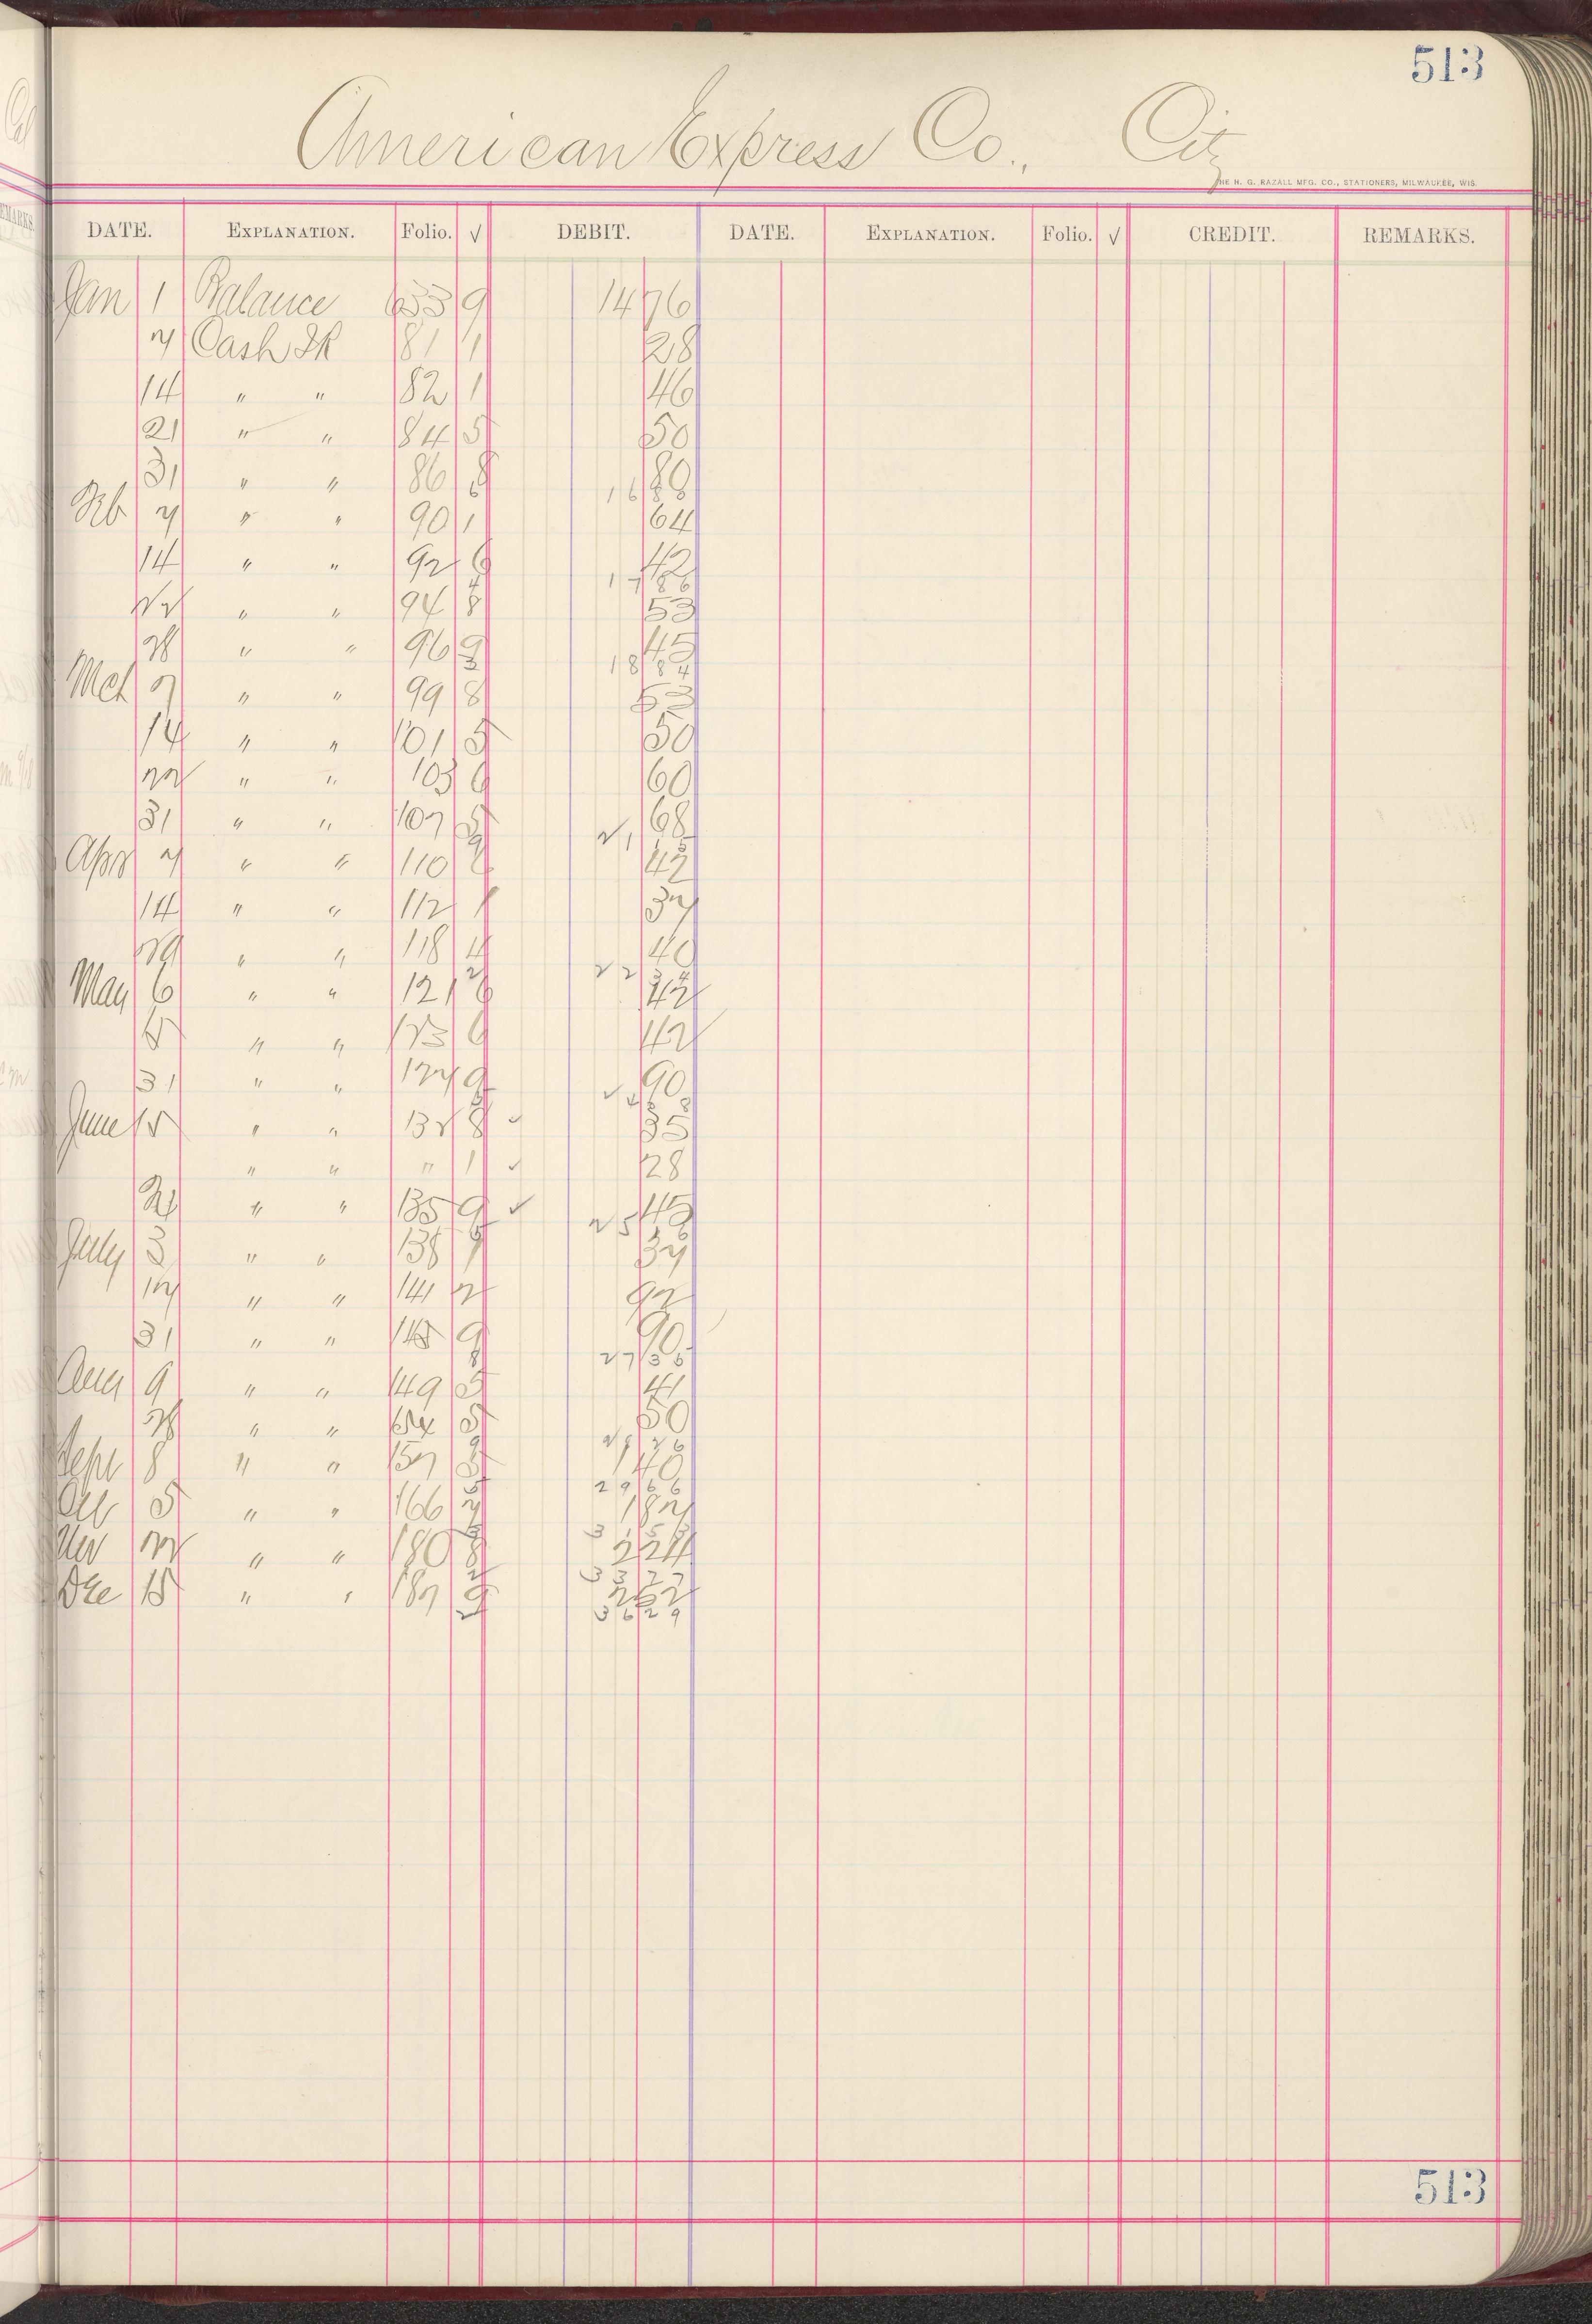 513
American Express Co., City
THE H. G. RAZALL MFG. CO., STATIONERS, MILWAUKEE, WIS.
DATE. EXPLANATION. Folio. √ DEBIT. DATE. EXPLANATION. Folio. √ CREDIT. REMARKS.
Jan 1 Balance 633 9 14 76
7 Cash IR 81 1 28
14 " " 82 1 46
21 " " 84 5 50
31 " " 86 8 80
6 16 80
Feb 7 " " 90 1 64
14 " " 92 6 42
4 17 86
22 " " 94 8 53
28 " " 96 9 45
3 18 84
Mch 7 " " 99 8 53
14 " " 101 5 50
22 " " 103 6 60
31 " " 107 5 68
9 21 15
Apr 7 " " 110 6 42
14 " " 112 1 37
29 " " 118 4 40
2 22 34
May 6 " " 121 6 42
15 " " 123 6 42
31 " " 127 9 90
24 08
June 15 " " 132 8 ✓ 35
" " " 1 ✓ 28
21 " " 135 9 ✓ 45
25 16
July 3 " " 138 1 37
17 " " 141 2 92
31 " " 145 9 90
8 27 35
Aug 9 " " 149 5 41
28 " " 154 5 50
9 28 26
Sept 8 " " 157 5 1 40
5 29 66
Oct 5 " " 166 7 1 87
3 31 53
Nov 22 " " 180 8 2 24
2 33 77
Dec 15 " " 187 9 2 52
2 36 29
513